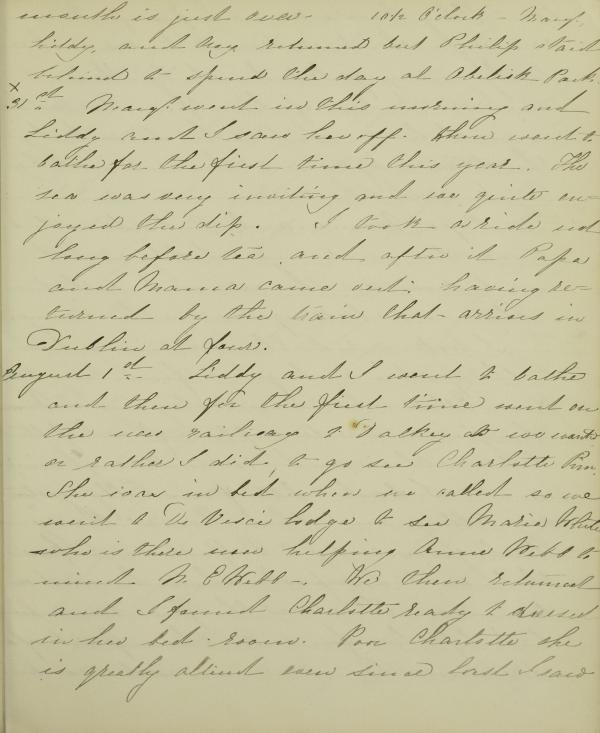 month is just over - 10½ O'Clock - Margt.
Liddy, and Roy returned but Philip staid
behind to spend the day at Obelisk Park
x 31st Margt. went in this morning and
Liddy and I saw her off. then went to
bathe for the first time this year. The
sea was very inviting and we quite en-
joyed the dip. I took a ride not
long before tea and after it Papa
and Mama came out; having re-
turned by the train that arrives in
Dublin at four.
August 1st Liddy and I went to bathe
and then for the first time went on
the new railway to Dalkey as we wanted
or rather I did, to go see Charlotte Pim.
She was in bed when we called so we
went to De Vesci lodge to see Maria White
who is there now helping Anne Webb to
mind M. E Webb -. We then returned
and I found Charlotte ready to dressed
in her bed-room. Poor Charlotte she
is greatly altered even since last I saw